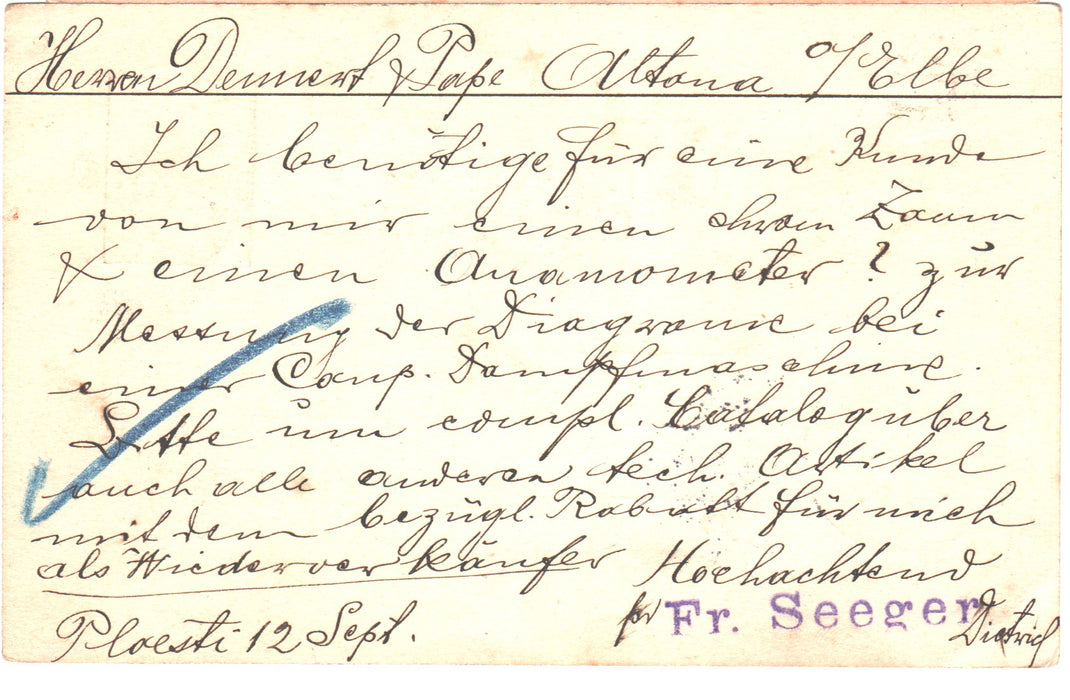 Herren Dennert & Pape Altona o/Elbe
Ich benötige für eine Kunde
von mir einen
& einen Anamometer? zur
Messung der Diagrame bei
einer Comp. Dampfmaschine.
Bitte um compl. Catalog über
auch alle anderen tech. Artikel
mit dem bezügl. Rabatt für mich
als Wiederverkäufer Hochachtend
pr Fr. Seeger
Dietrich
Ploesti 12 Sept.